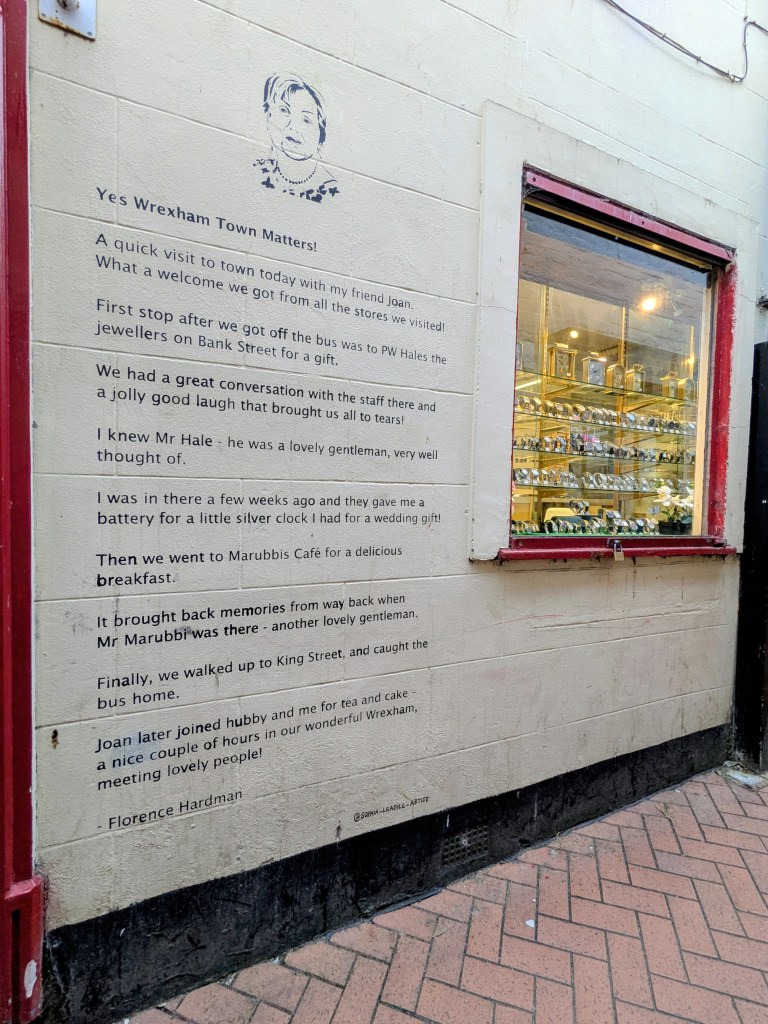 Yes Wrexham Town Matters!
A quick visit to town today with my friend Joan.
What a welcome we got from all the stores we visited!
First stop after we got off the bus was to PW Hales the
jewellers on Bank Street for a gift.
We had a great conversation with the staff there and
a jolly good laugh that brought us all to tears!
I knew Mr Hale - he was a lovely gentleman, very well
thought of.
I was in there a few weeks ago and they gave me a
battery for a little silver clock I had for a wedding gift!
Then we went to Marubbis Café for a delicious
breakfast.
It brought back memories from way back when
Mr Marubbi was there - another lovely gentleman.
Finally, we walked up to King Street, and caught the
bus home.
Joan later joined hubby and me for tea and cake -
a nice couple of hours in our wonderful Wrexham,
meeting lovely people!
- Florence Hardman